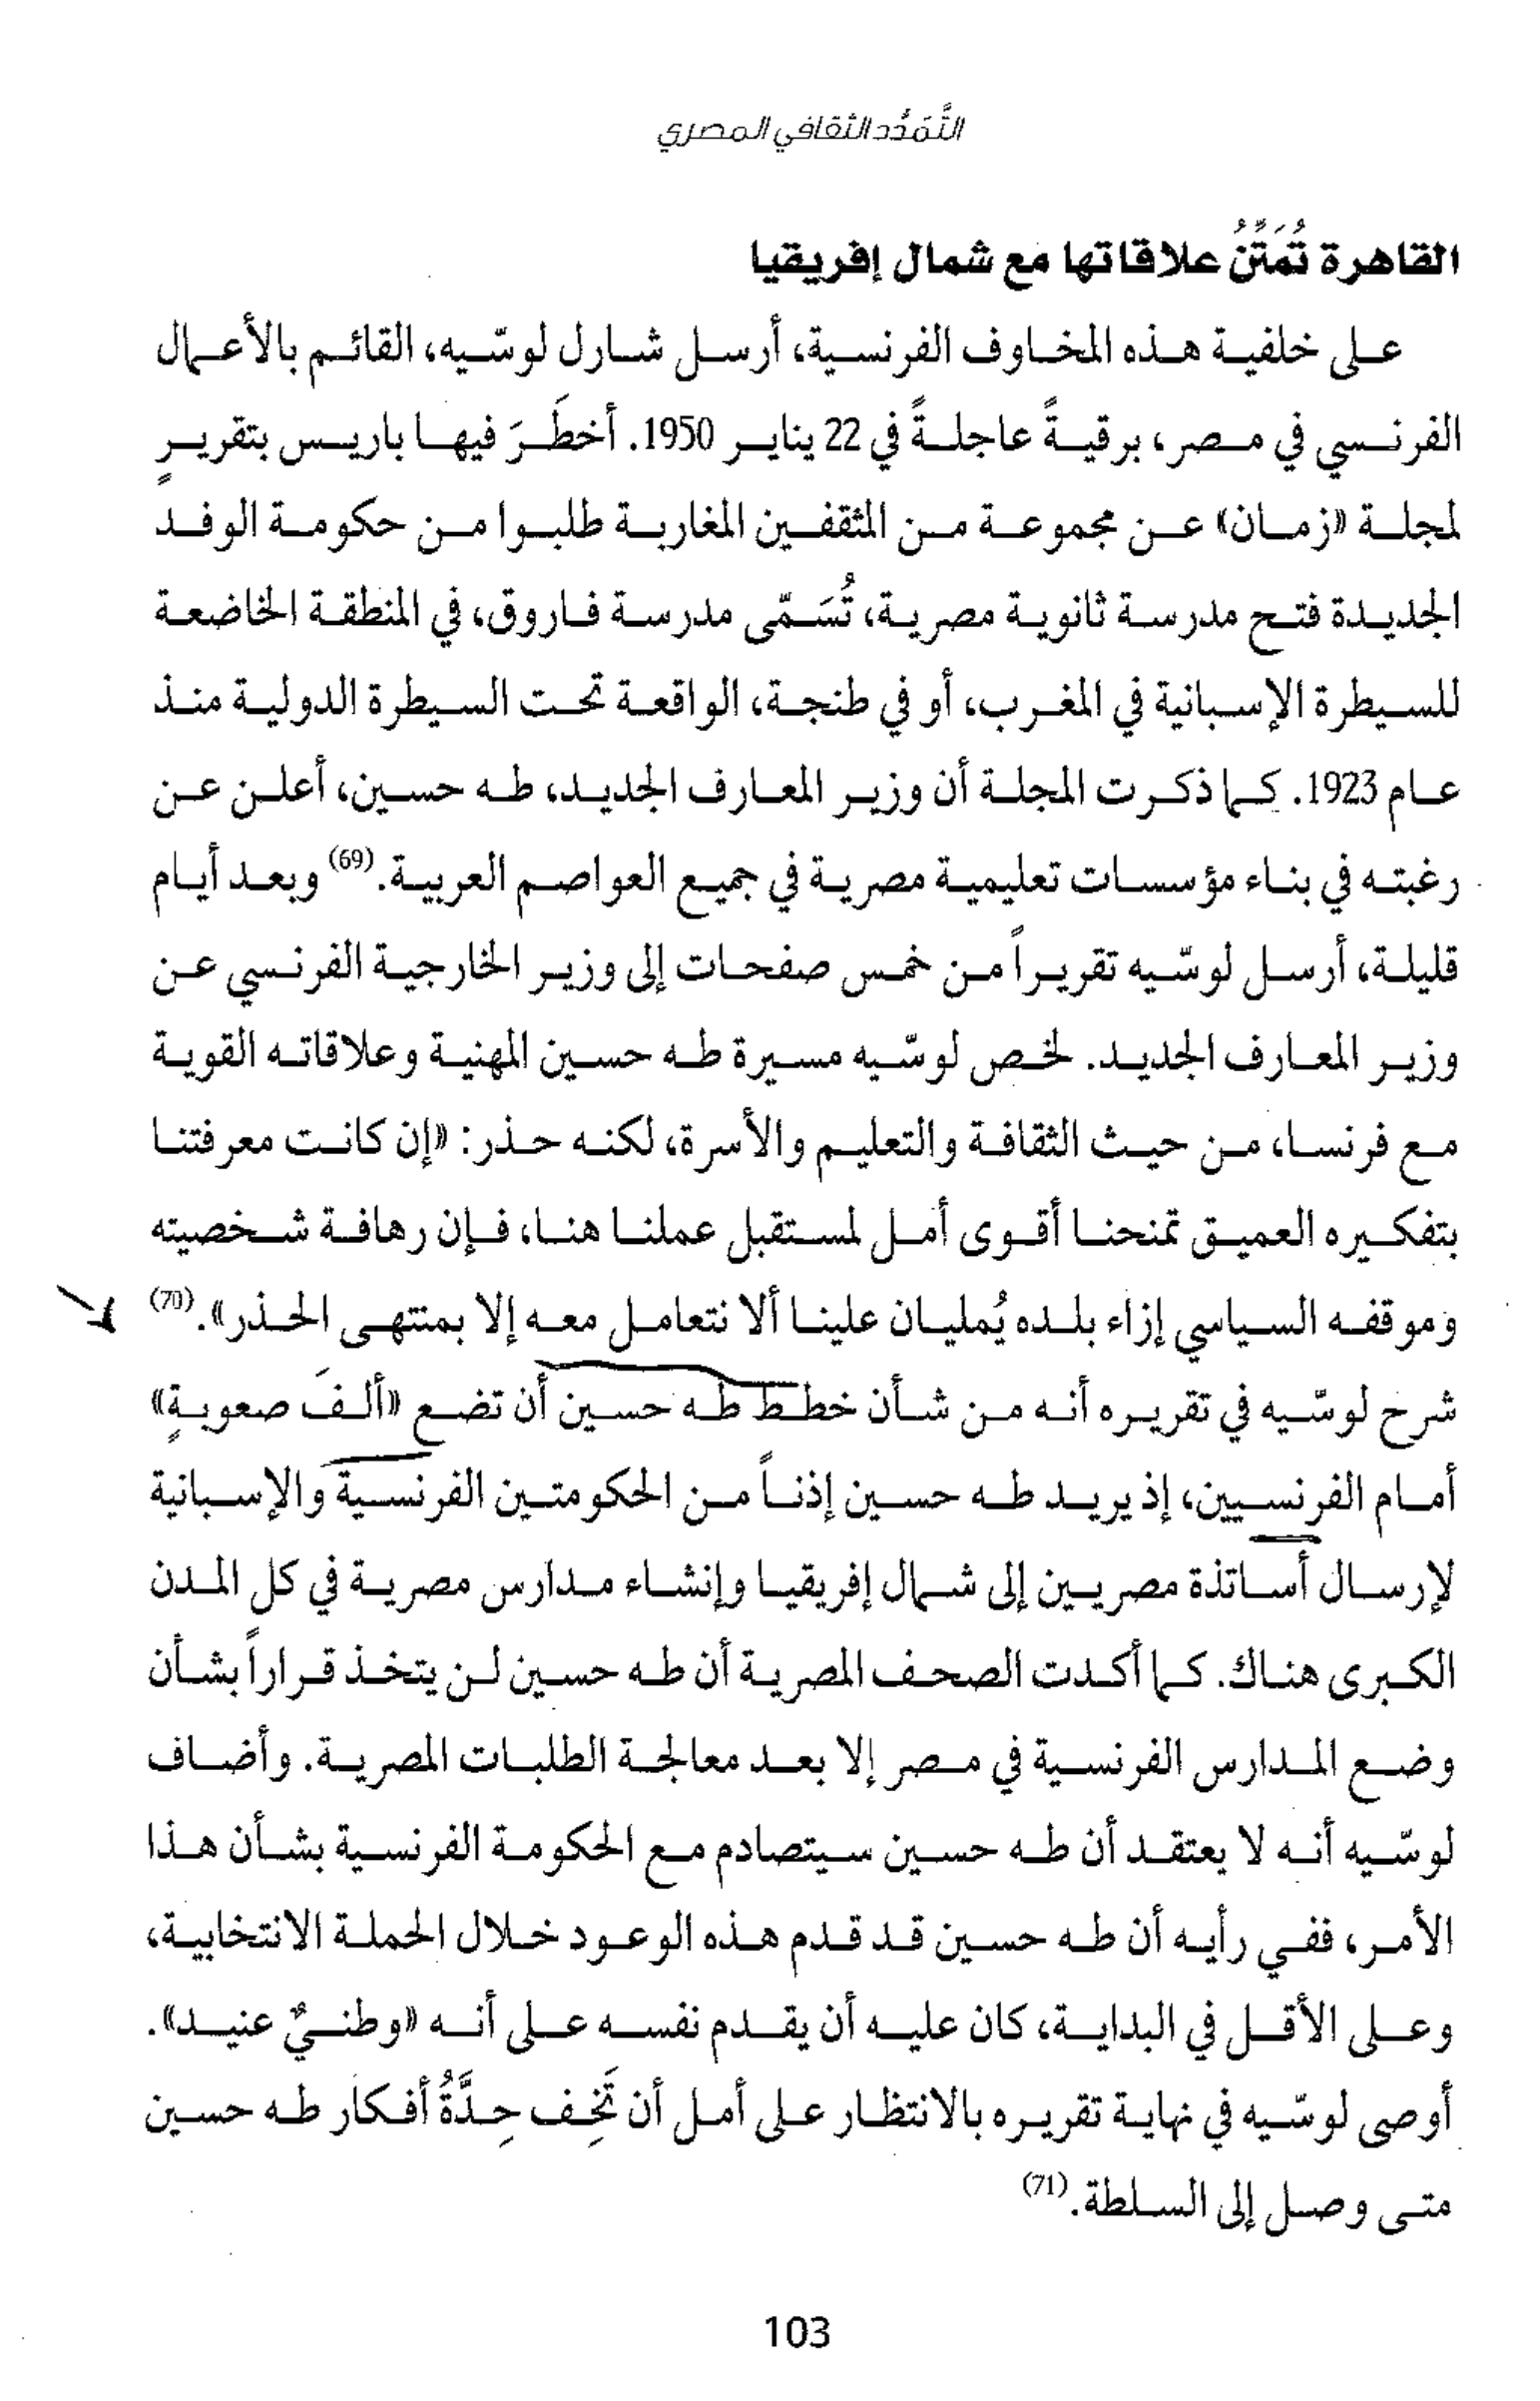 التَّمَدُّد الثقافي المصري
القاهرة تُمَتِّنُ علاقاتها مع شمال إفريقيا
على خلفية هذه المخاوف الفرنسية، أرسل شارل لوسّيه، القائم بالأعمال
الفرنسي في مصر، برقيةً عاجلةً في 22 يناير 1950. أخطَرَ فيها باريس بتقريرٍ
لمجلة «زمان» عن مجموعة من المثقفين المغاربة طلبوا من حكومة الوفد
الجديدة فتح مدرسة ثانوية مصرية، تُسَمّى مدرسة فاروق، في المنطقة الخاضعة
للسيطرة الإسبانية في المغرب، أو في طنجة، الواقعة تحت السيطرة الدولية منذ
عام 1923. كما ذكرت المجلة أن وزير المعارف الجديد، طه حسين، أعلن عن
رغبته في بناء مؤسسات تعليمية مصرية في جميع العواصم العربية.(69) وبعد أيام
قليلة، أرسل لوسّيه تقريراً من خمس صفحات إلى وزير الخارجية الفرنسي عن
وزير المعارف الجديد. لخص لوسّيه مسيرة طه حسين المهنية وعلاقاته القوية
مع فرنسا، من حيث الثقافة والتعليم والأسرة، لكنه حذر: «إن كانت معرفتنا
بتفكيره العميق تمنحنا أقوى أمل لمستقبل عملنا هنا، فإن رهافة شخصيته
وموقفه السياسي إزاء بلده يُمليان علينا ألا نتعامل معه إلا بمنتهى الحذر».(70)
شرح لوسّيه في تقريره أنه من شأن خطط طه حسين أن تضع «ألفَ صعوبةٍ»
أمام الفرنسيين، إذ يريد طه حسين إذناً من الحكومتين الفرنسية والإسبانية
لإرسال أساتذة مصريين إلى شمال إفريقيا وإنشاء مدارس مصرية في كل المدن
الكبرى هناك. كما أكدت الصحف المصرية أن طه حسين لن يتخذ قراراً بشأن
وضع المدارس الفرنسية في مصر إلا بعد معالجة الطلبات المصرية. وأضاف
لوسّيه أنه لا يعتقد أن طه حسين سيتصادم مع الحكومة الفرنسية بشأن هذا
الأمر، ففي رأيه أن طه حسين قد قدم هذه الوعود خلال الحملة الانتخابية،
وعلى الأقل في البداية، كان عليه أن يقدم نفسه على أنه «وطنيٌ عنيد».
أوصى لوسّيه في نهاية تقريره بالانتظار على أمل أن تَخِف حِدَّةُ أفكار طه حسين
متى وصل إلى السلطة.(71)
103